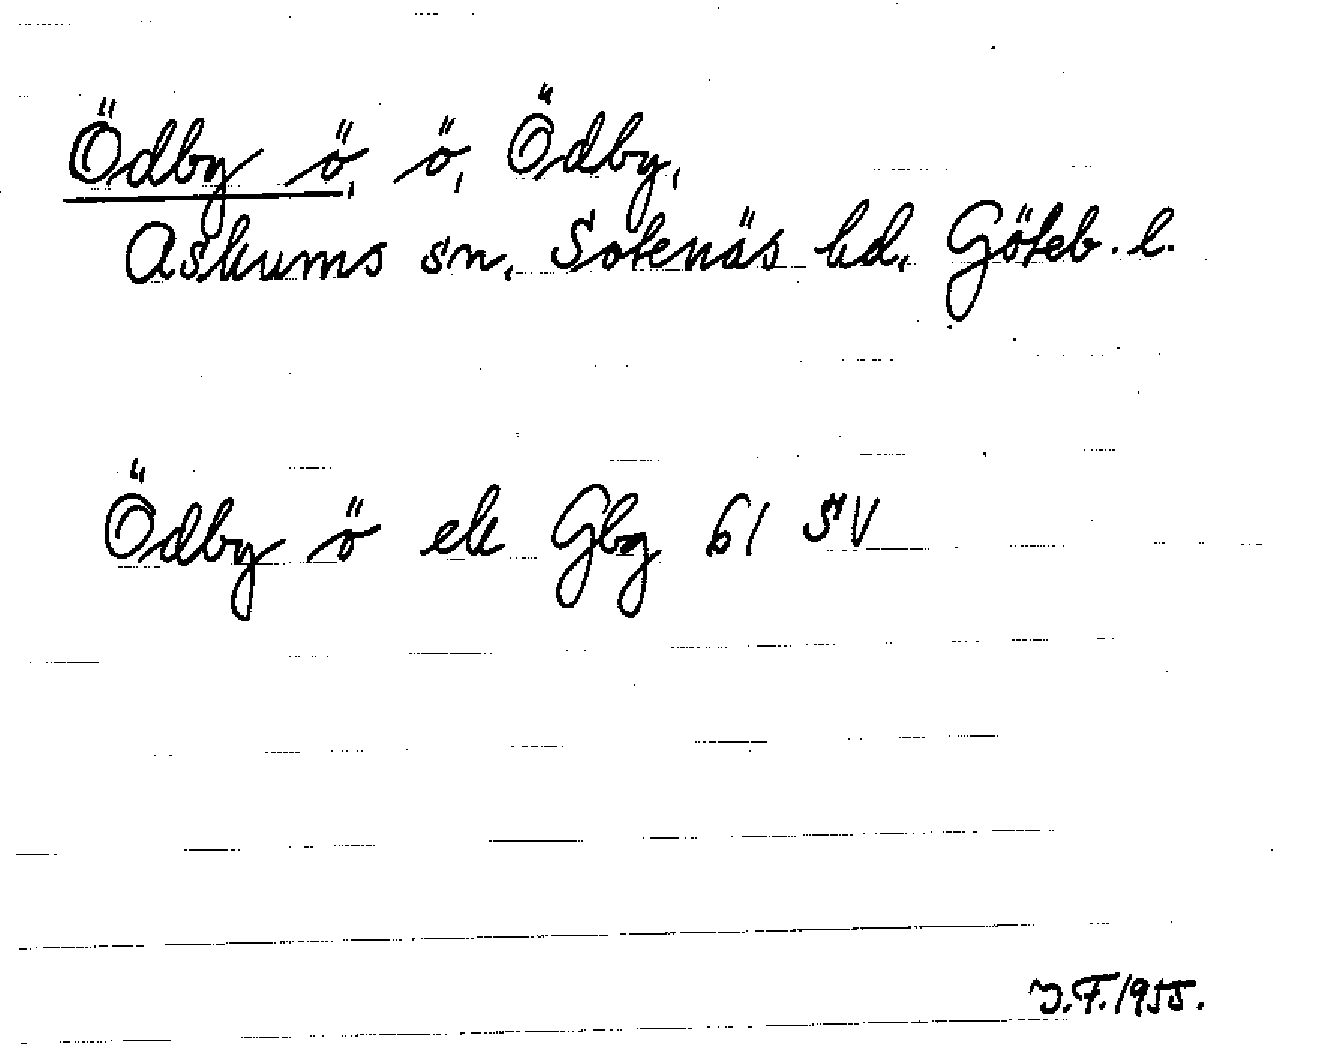 Ödby ö, ö, Ödby,
Askums sn, Sotenäs hd, Göteb. l.
Ödby ö ek Gbg 61 SV
J.F. 1955.